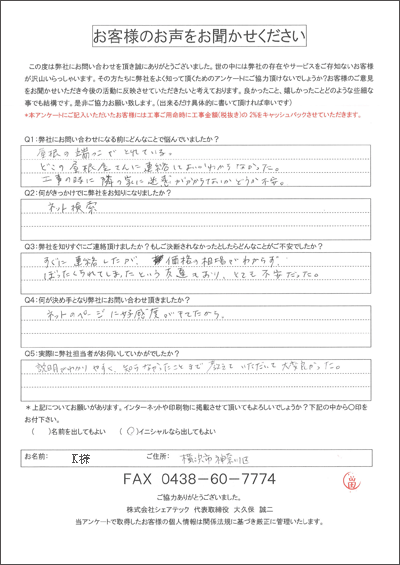 お客様のお声をお聞かせください
この度は弊社にお問い合わせを頂き誠にありがとうございました。世の中には弊社の存在やサービスをご存知ないお客様
が沢山いらっしゃいます。その方たちに弊社をよく知って頂くためのアンケートにご協力頂けないでしょうか?お客様のご意見
をお聞かせいただき今後の活動に反映させていただきたいと考えております。良かったこと、嬉しかったことなどのような些細な
事でも結構です。是非ご協力お願い致します。(出来るだけ具体的に書いて頂ければ幸いです)
*本アンケートにご記入いただいたお客様には工事ご用命時に工事金額(税抜き)の2%をキャッシュバックさせていただきます。
Q1:弊社にお問い合わせになる前にどんなことで悩んでいましたか?
屋根の端っこがとれている。
どこの屋根屋さんに連絡してよいかわからなかった。
工事の時に隣の家に迷惑がかからないかどうか不安。
Q2:何がきっかけでに弊社をお知りになりましたか?
ネット検索
Q3:弊社を知りすぐにご連絡頂けましたか?もしご決断されなかったとしたらどんなことがご不安でしたか?
すぐに連絡したが、価格の相場がわからず、
ぼったくられてしまったという友達もおり、とても不安だった。
Q4:何が決め手となり弊社にお問い合わせ頂きましたか?
ネットのページに好感度がもてたから。
Q5:実際に弊社担当者がお伺いしていかがでしたか?
説明がわかりやすく、知らなかったことまで教えていただいて大変良かった。
*上記についてお願いがあります。インターネットや印刷物に掲載させて頂いてもよろしいでしょうか?下記の中から〇印を
お付下さい。
( )名前を出してもよい (〇)イニシャルなら出してもよい
お名前: K様 ご住所: 横浜市神奈川区
FAX 0438-60-7774
ご協力ありがとうございました。
株式会社シェアテック 代表取締役 大久保 誠二
当アンケートで取得したお客様の個人情報は関係法規に基づき厳正に管理いたします。